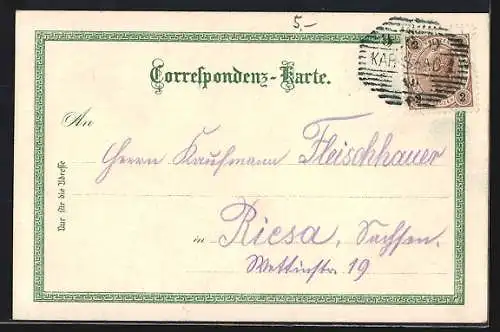 5.-
KARLSBAD
2
Correspondenz-Karte.
An
Herrn Kaufmann Fleischhauer
in Riesa, Sachsen.
Wettinstr. 19
Nur für die Adresse